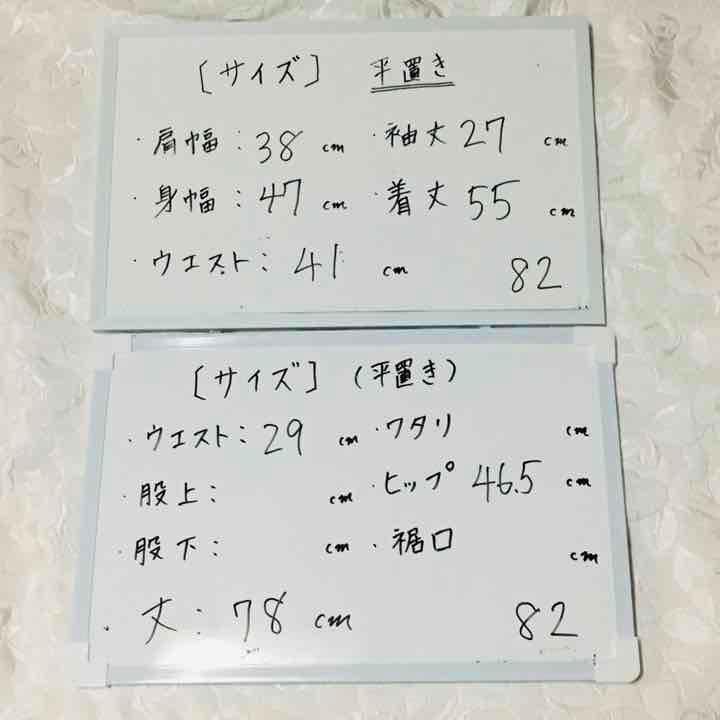 [サイズ] 平置き
・肩幅：38 cm ・袖丈 27 cm
・身幅：47 cm ・着丈 55 cm
・ウエスト：41 cm 82
[サイズ] (平置き)
・ウエスト：29 cm ・ワタリ cm
・股上： cm ・ヒップ 46.5 cm
・股下： cm ・裾口 cm
・丈：78 cm 82